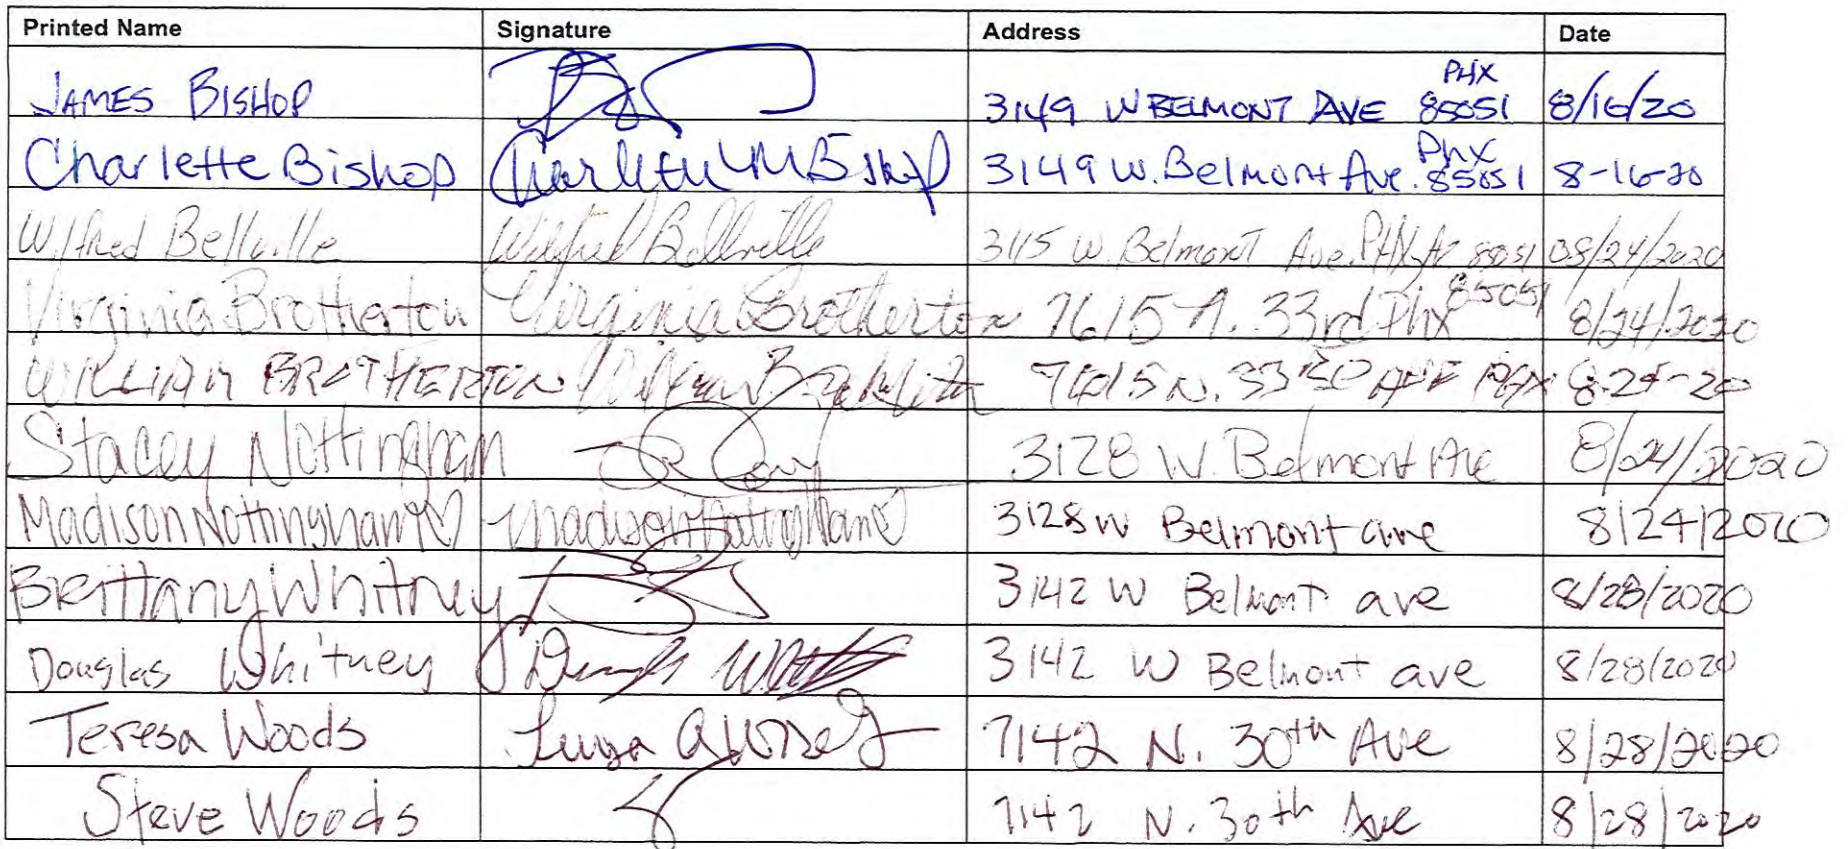 Printed Name Signature Address Date
JAMES BISHOP 3149 W BELMONT AVE PHX 85051 8/16/20
Charlette Bishop Charlette M Bishop 3149 W. Belmont Ave. Phx 85051 8-16-20
Wilfred Bellville Wilfred Bellville 3115 W. Belmont Ave. PHX, Az 85051 08/24/2020
Virginia Brotherton Virginia Brotherton 7615 N. 33rd Phx 85051 8/24/2020
WILLIAM BROTHERTON William Brotherton 7615 N. 33RD AVE PHX 8-24-20
Stacey Nottingham 3128 W. Belmont Ave 8/24/2020
Madison Nottingham Madison Nottingham 3128 W Belmont ave 8/24/2020
Brittany Whitney 3142 W Belmont ave 8/28/2020
Douglas Whitney 3142 W Belmont ave 8/28/2020
Teresa Woods 7142 N. 30th Ave 8/28/2020
Steve Woods 7142 N. 30th Ave 8/28/2020